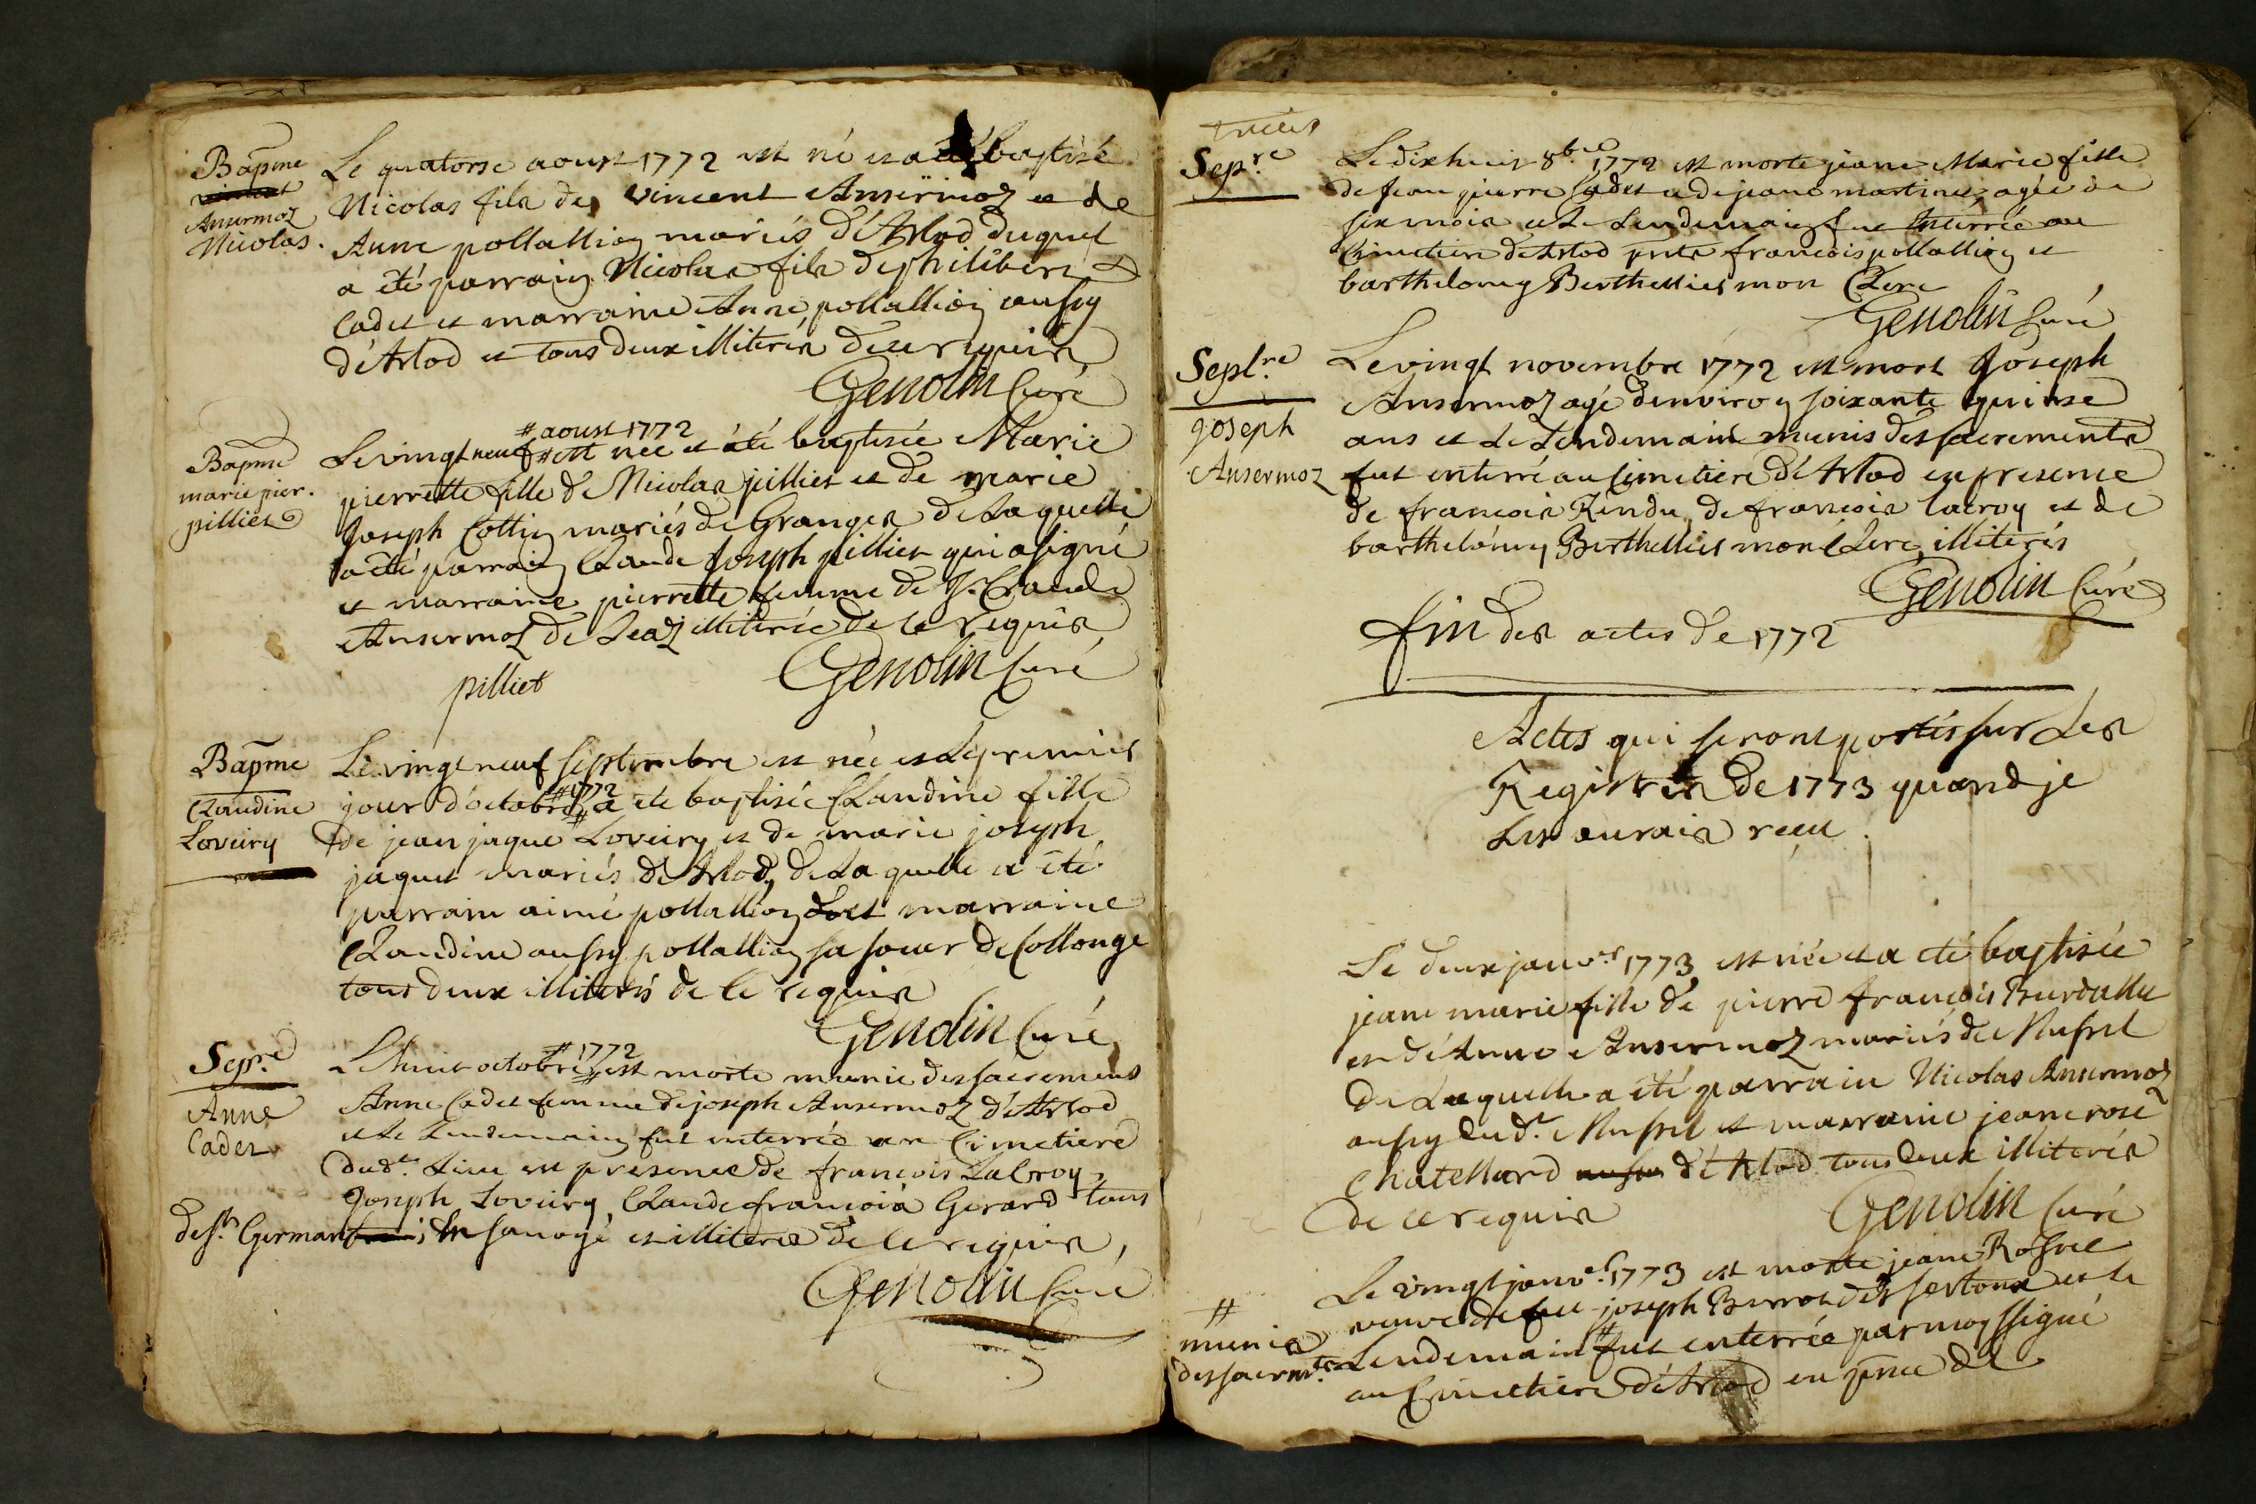 Bapme
vincent
Ansermoz
Nicolas.
Le quatorse aoust 1772 est né et a été baptisé
Nicolas fils de vincent Ansermoz et de
Anne pollallion mariés d'Arlod duquel
a été parrain Nicolas fils de philibert
Cadet et marraine Anne pollallion aussy
d'Arlod et tous deux illiterés de ce requis
Genolin Curé
Bapme
marie pier.
pilliet
# aoust 1772
Le vingt neuf # est née et a été baptisée Marie
pierrette fille de Nicolas pilliet et de marie
Joseph Collin mariés de Granges de Laquelle
a été parrain Claude Joseph pilliet qui a signé
et marraine pierrette femme de Jn Claude
Ansermoz de Leaz illiterée de ce requis
pilliet
Genolin Curé
Bapme
Claudine
Loveiry
Le vingt neuf septembre est née et Le premier
# 1772
jour d'octobre # a été baptisée Claudine fille
de jean jaque Loveiry et de marie joseph
jaquet mariés d'Arlod, de Laquelle a été
parrain aimé pollallion et marraine
Claudine aussy pollallion sa soeur de Collonge
tous deux illiterés de ce requis
Genolin Curé
Sepre
Anne
Cadet
# 1772
Le huit octobre # est morte munie des sacremens
Anne Cadet femme de joseph Ansermoz d'Arlod
et Le Lendemain fut enterrée au Cimetiere
dudt. Lieu en presence de francois LaCroy,
Joseph Loveiry, Claude francois Gerard tous
de St. Germain en savoye et illiterés de ce requis,
Genolin Curé
Sepre
Le dix huit 8bre 1772 est morte jeane Marie fille
de Jean pierre Cadet et de jeane martinet, agée de
six mois et Le Lendemain fut Interrée au
Cimetiere d'Arlod pnts francois pollallion et
barthelemy Berthellier mon Clerc
Genolin Curé
Seplre
joseph
Ansermoz
Le vingt novembre 1772 est mort Joseph
Ansermoz agé d'environ soixante quinse
ans et Le Lendemain munis des sacrements
fut enterré au Cimetiere d'Arlod en presence
de francois Rendu, de francois lacroy et de
barthelémy Berthellier mon Clerc illiterés
Genolin Curé
fin des actes de 1772
Actes qui seront portés sur Les
Registres de 1773 quand je
Les aurais reçu.
Le deux janver 1773 est née et a été baptisée
jeane marie fille de pierre francois Burdallet
et d'Anne Ansermoz mariés de Mussel
de Laquelle a été parrain Nicolas Ansermoz
aussy dudt. Mussel et marraine jeane rose
Chatellard aussy d'Arlod tous deux illiterés
de ce requis
Genolin Curé
#
munie
des sacrmts
Le vingt janver 1773 est morte jeane Rossel
veuve de feu joseph Burrot des sertoux et le
Lendemain # fut enterrée par moy ssigné
au Cimetiere d'Arlod en pnce de